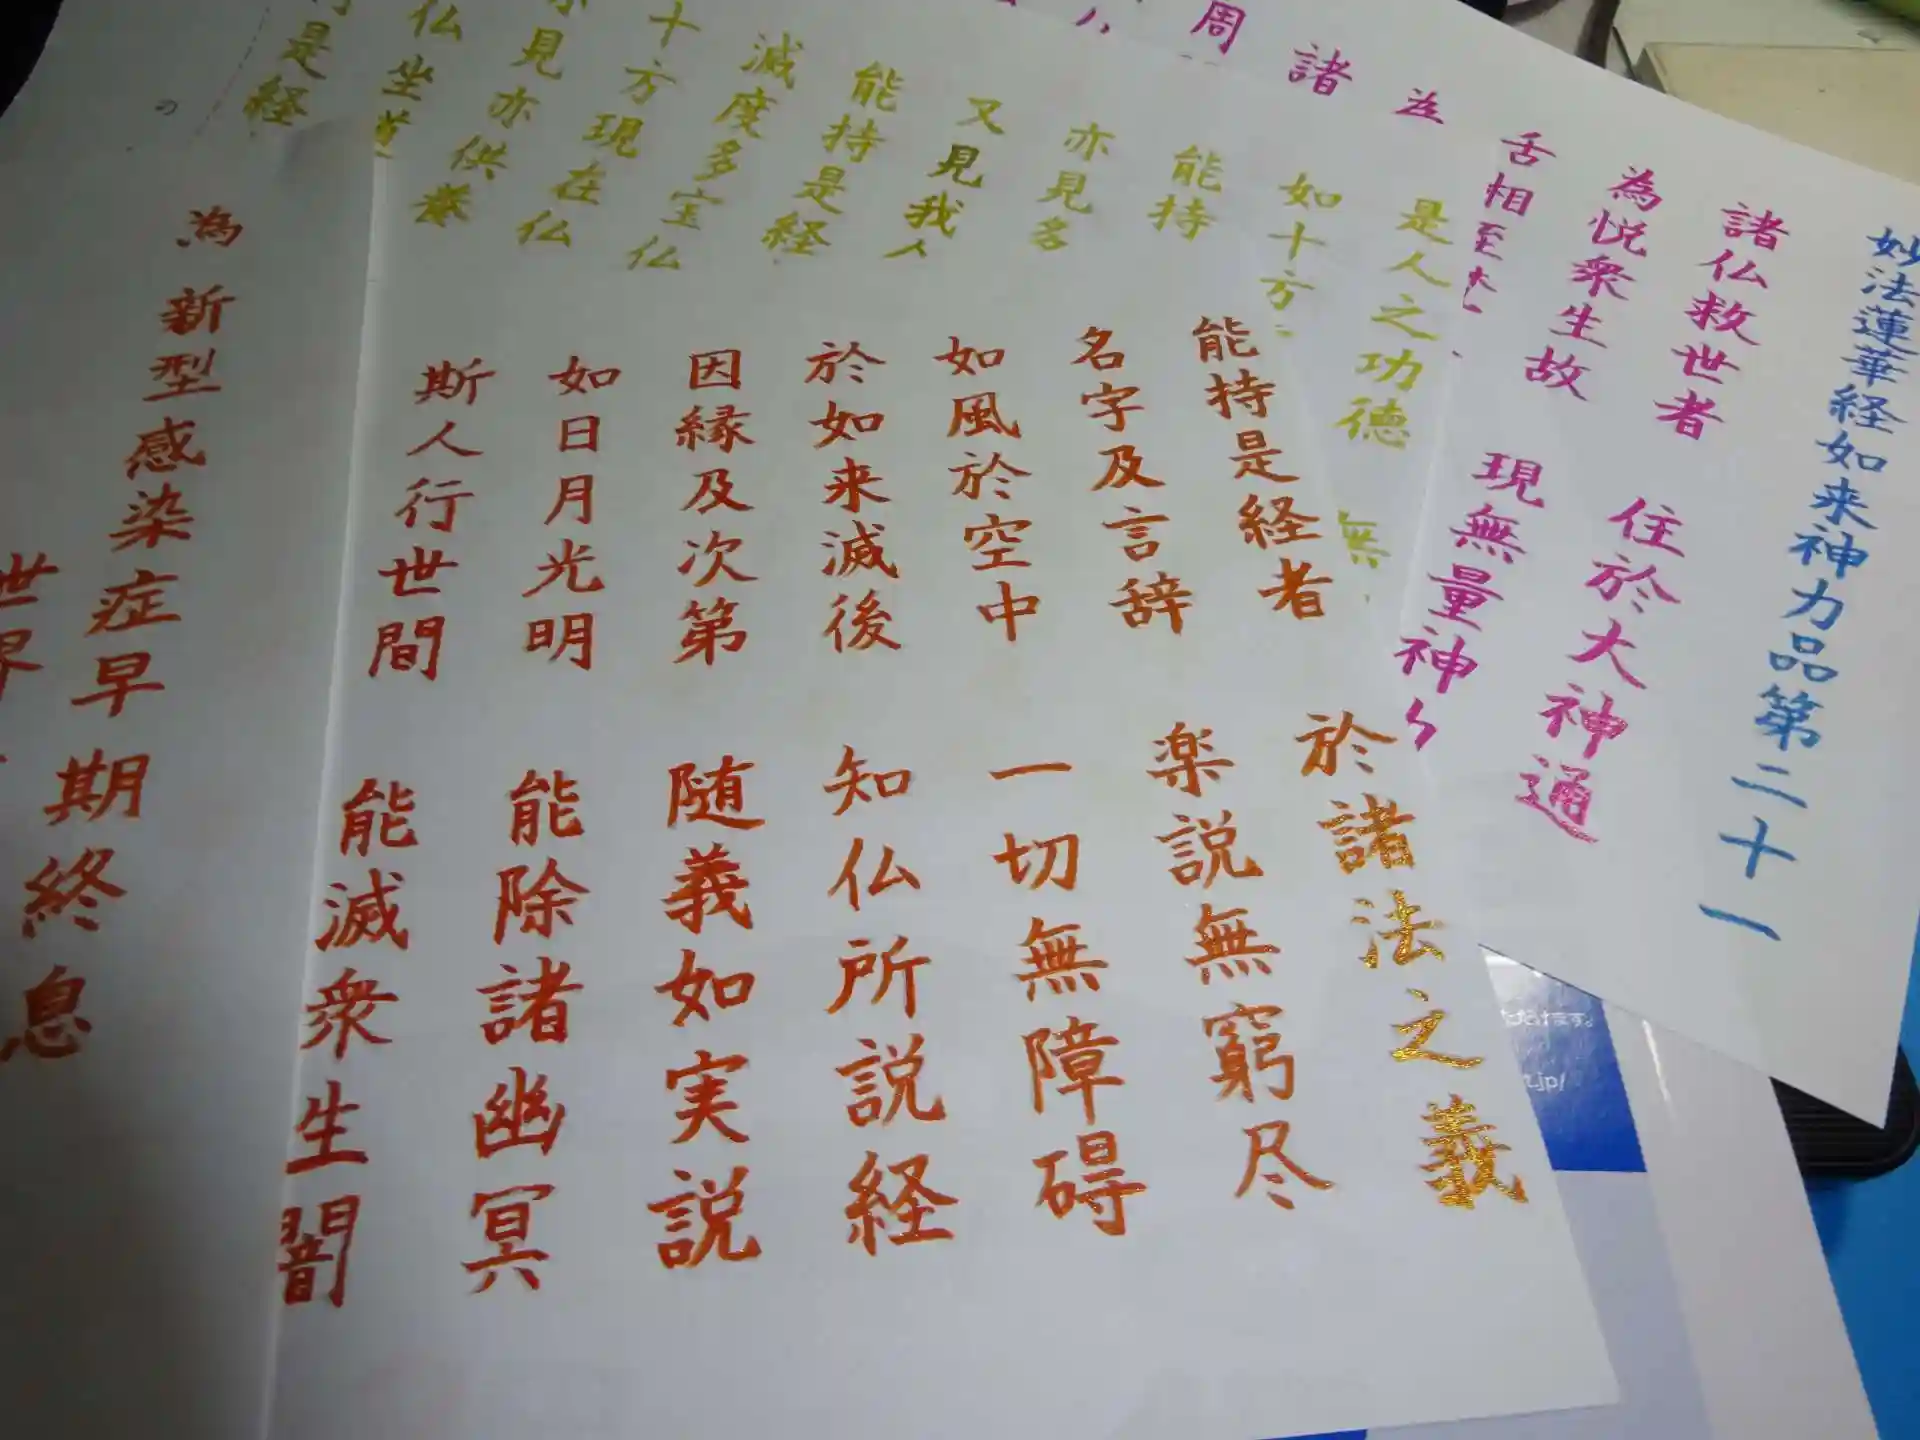 妙法蓮華経如来神力品第二十一
諸仏救世者 住於大神通
為悦衆生故 現無量神
舌相至
諸
周
是人之功徳 無
如十方
能持
亦見
又見我
能持是経
滅度多宝仏
十方現在仏
見亦供養
仏坐道
是経
能持是経者 於諸法之義
名字及言辞 楽説無窮尽
如風於空中 一切無障碍
於如来滅後 知仏所説経
因縁及次第 随義如実説
如日月光明 能除諸幽冥
斯人行世間 能滅衆生闇
為 新型感染症早期終息
世界
の
だけます。
.jp/